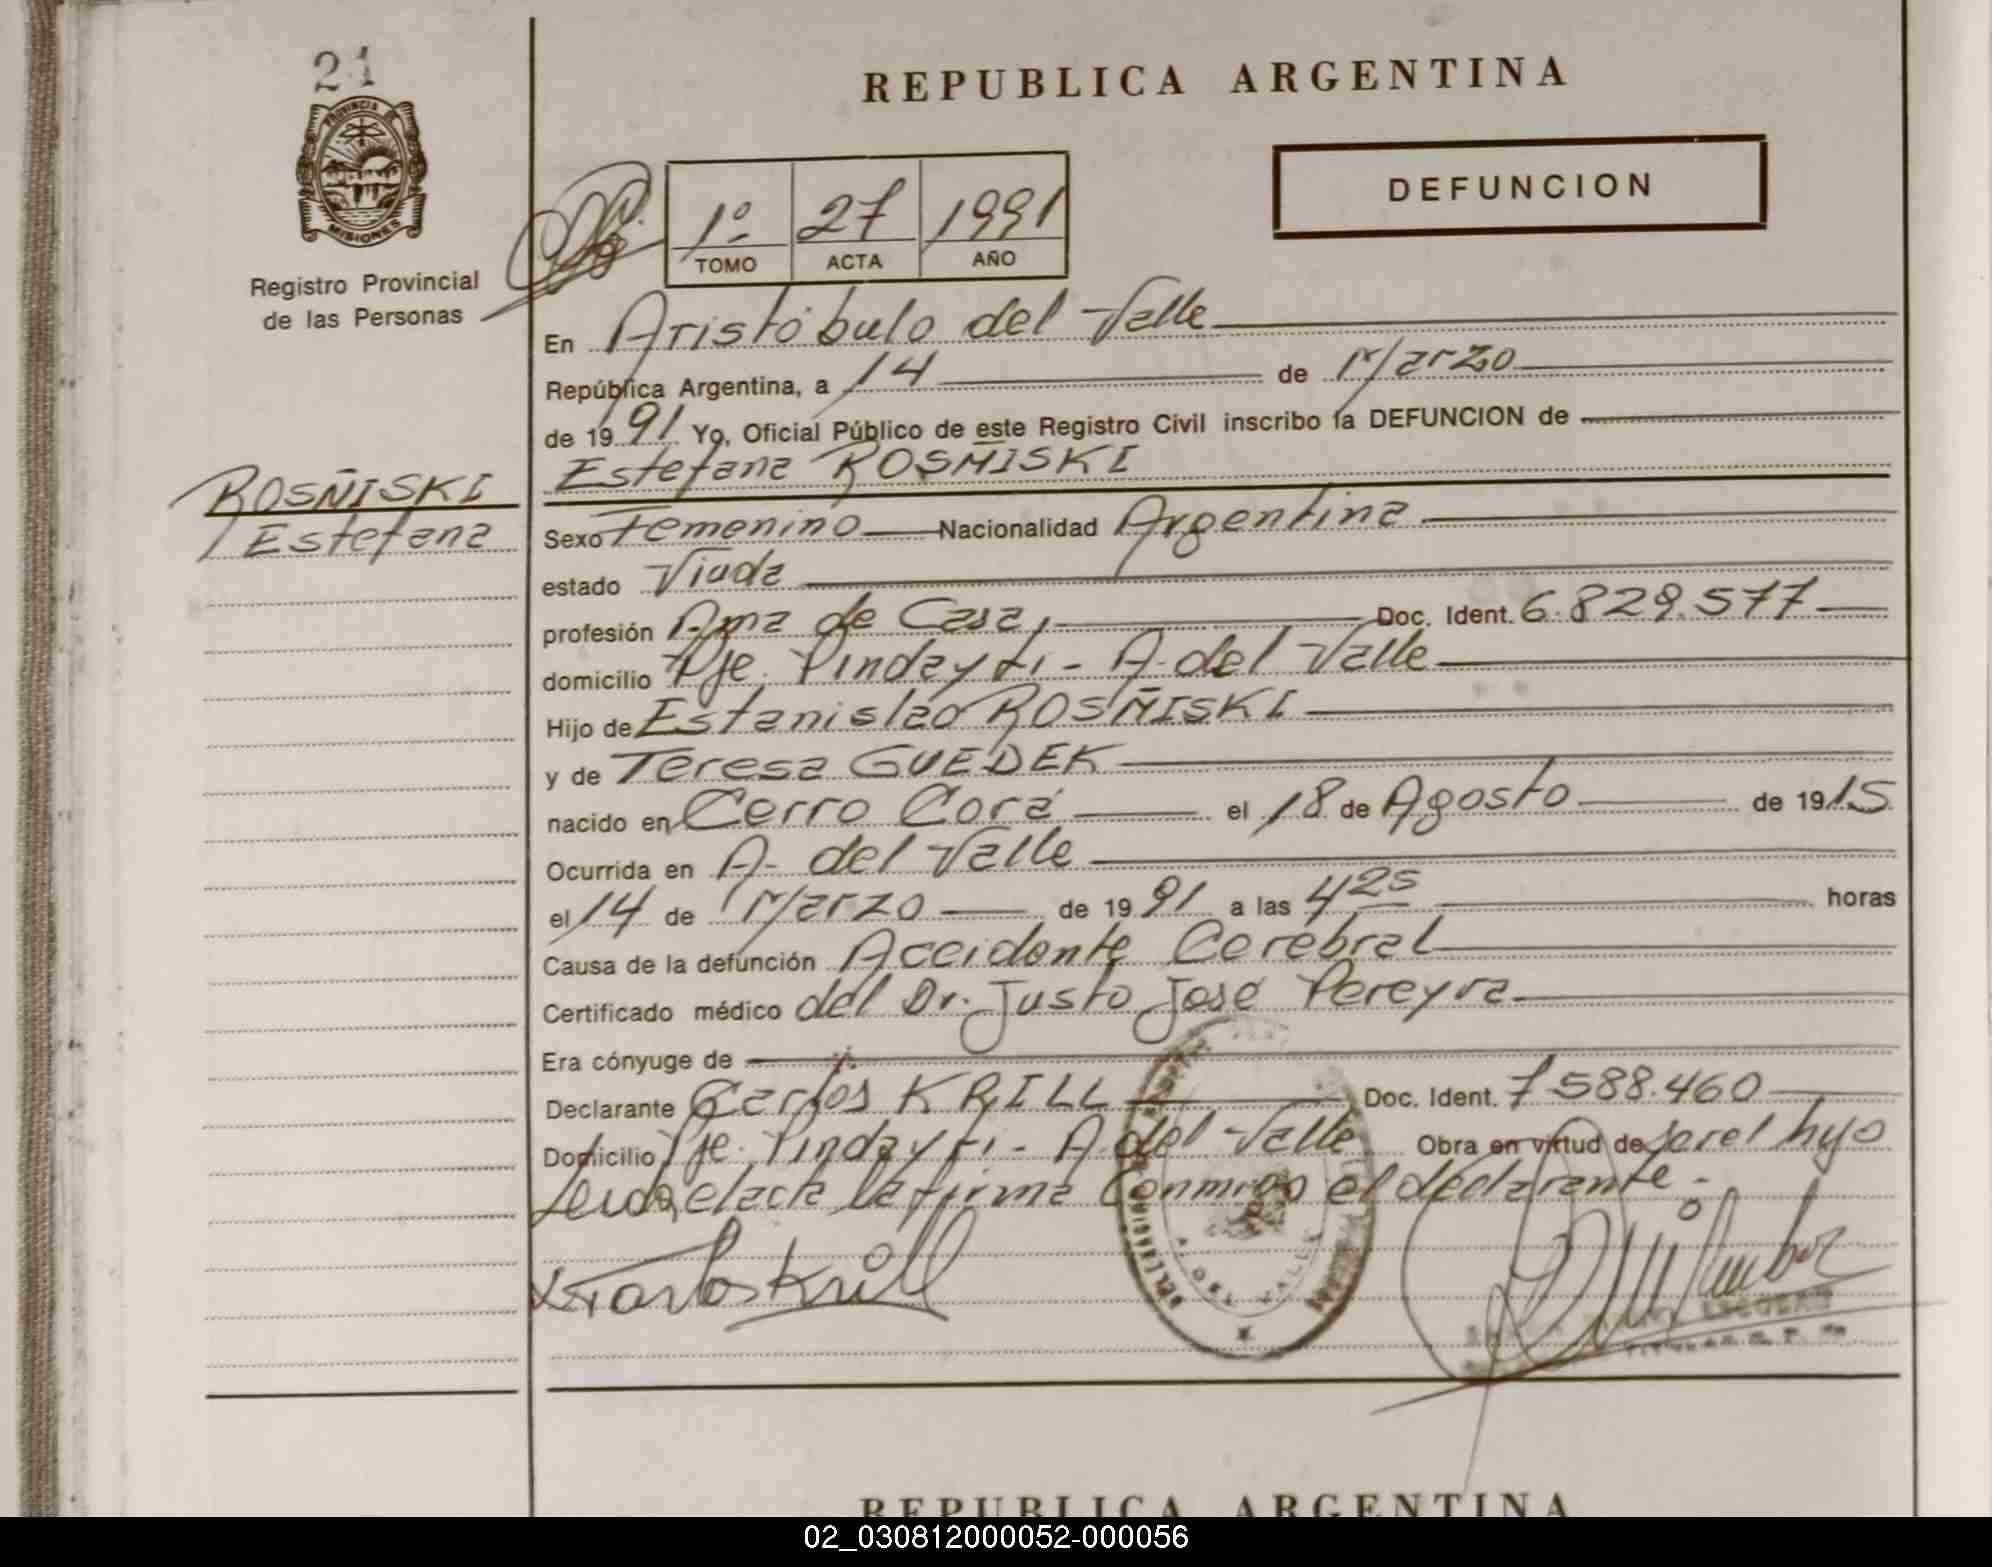 21
REPUBLICA ARGENTINA
PROVINCIA DE
MISIONES
Registro Provincial
de las Personas
1º TOMO 27 ACTA 1991 AÑO
DEFUNCION
En Aristóbulo del Valle
República Argentina, a 14 de Marzo
de 1991 Yo, Oficial Público de este Registro Civil inscribo la DEFUNCION de
Estefana ROSÑISKI
ROSÑISKI
Estefana
Sexo Femenino Nacionalidad Argentina
estado Viuda
profesión Ama de Casa, Doc. Ident. 6.829.577
domicilio Pje. Pindayti - A. del Valle
Hijo de Estanislao ROSÑISKI
y de Teresa GUEDEK
nacido en Cerro Corá el 18 de Agosto de 1915
Ocurrida en A. del Valle
el 14 de Marzo de 1991 a las 4 25 horas
Causa de la defunción Accidente Cerebral
Certificado médico del Dr. Justo José Pereyra
Era cónyuge de
Declarante Carlos KRILL Doc. Ident. 7588.460
Domicilio Pje. Pindayti - A. del Valle Obra en virtud de ser el hijo
Leida el acta la firma Conmigo el declarante.-
Carlos Krill
A. DEL VALLE
ESCOBAR
TITULAR R. P. P.
REPUBLICA ARGENTINA
02_030812000052-000056